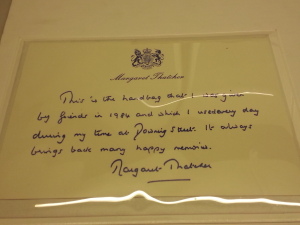 Margaret Thatcher
This is the handbag that I was given
by friends in 1984 and which I used every day
during my time at Downing Street. It always
brings back many happy memories.
Margaret Thatcher